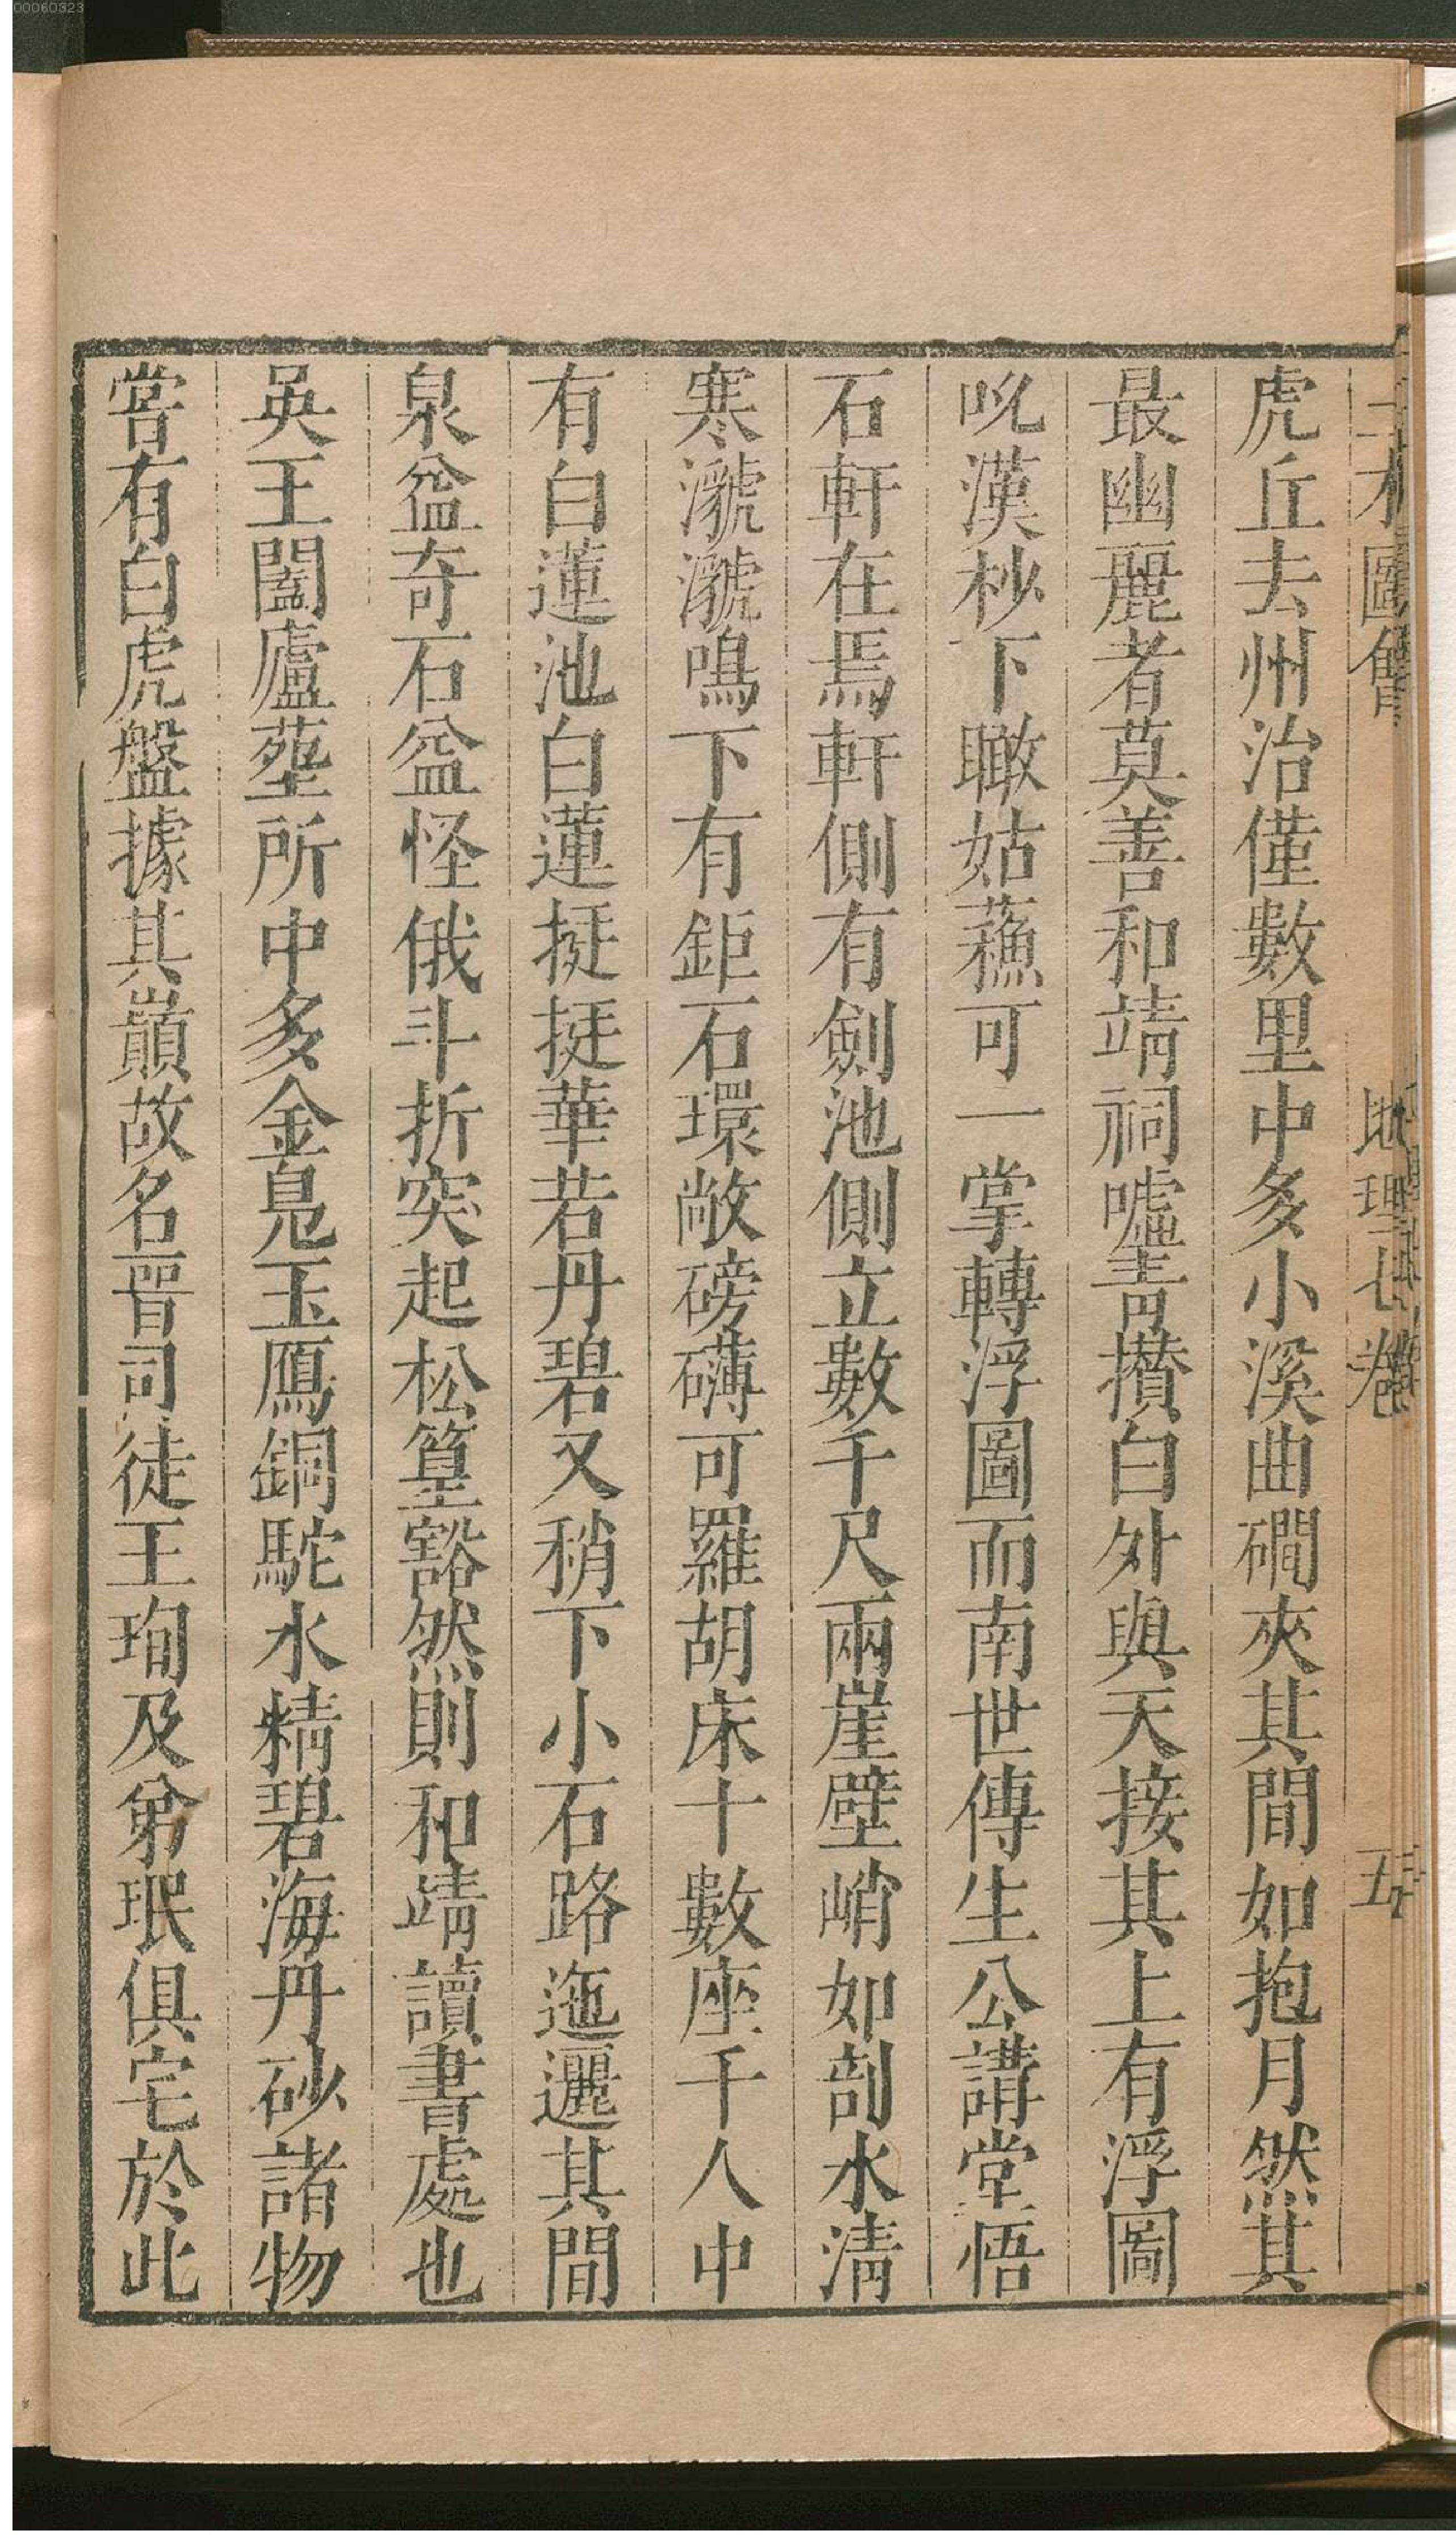 00060323
三才圖會 地理七卷 五
虎丘去州治僅數里中多小溪曲磵夾其間如抱月然其
最幽麗者莫善和靖祠噓青攢白外與天接其上有浮圖
吮漢杪下瞰姑蘓可一掌轉浮圖而南世傳生公講堂悟
石軒在焉軒側有劍池側立數千尺兩崖壁峭如剖水清
寒㶁㶁鳴下有鉅石環敞磅礴可羅胡床十數座千人中
有白蓮池白蓮挺挺華若丹碧又稍下小石路迤邐其間
泉益奇石益怪俄斗折突起松篁豁然則和靖讀書處也
吳王闔廬塟所中多金鳧玉鴈銅駝水精碧海丹砂諸物
嘗有白虎盤據其巔故名晉司徒王珣及弟珉俱宅於此